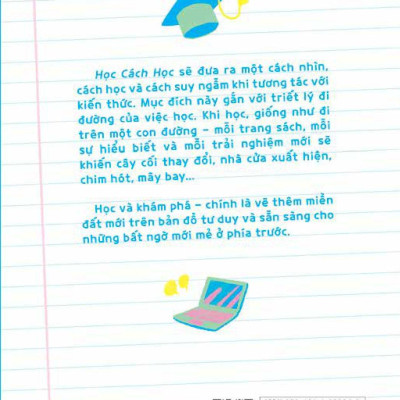 Học Cách Học sẽ đưa ra một cách nhìn,
cách học và cách suy ngẫm khi tương tác với
kiến thức. Mục đích này gắn với triết lý đi
đường của việc học. Khi học, giống như đi
trên một con đường – mỗi trang sách, mỗi
sự hiểu biết và mỗi trải nghiệm mới sẽ
khiến cây cối thay đổi, nhà cửa xuất hiện,
chim hót, mây bay...
Học và khám phá – chính là vẽ thêm miền
đất mới trên bản đồ tư duy và sẵn sàng cho
những bất ngờ mới mẻ ở phía trước.